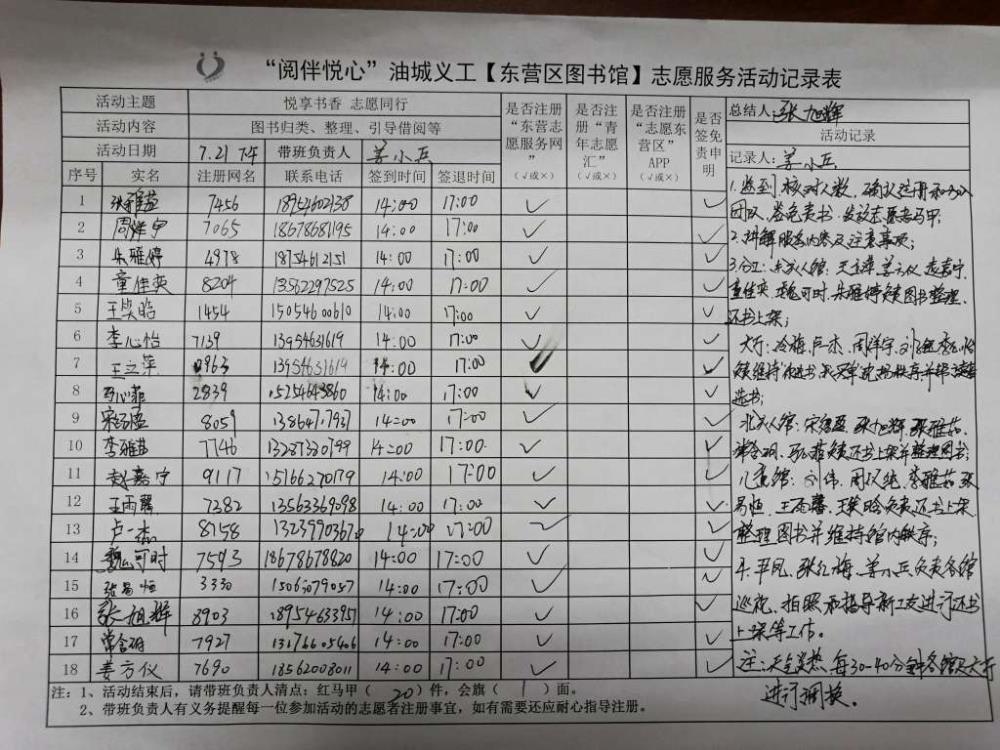 “阅伴悦心”油城义工【东营区图书馆】志愿服务活动记录表
活动主题 悦享书香 志愿同行
活动内容 图书归类、整理、引导借阅等
活动日期 7.21 下午 带班负责人 姜小兵
序号 实名 注册网名 联系电话 签到时间 签退时间
是否注册“东营志愿服务网”（√或×）
是否注册“青年志愿汇”（√或×）
是否注册“志愿东营区”APP（√或×）
是否签免责申明
总结人：张旭辉
活动记录
记录人：姜小兵
1 张雅茹 7456 18954602738 14:00 17:00 √ √
2 周洋宇 7065 18678681195 14:00 17:00 √ √
3 朱雅婷 4978 18754612151 14:00 17:00 √ √
4 童佳奕 8204 13562297525 14:00 17:00 √ √
5 王昊晗 1454 15054600610 14:00 17:00 √ √
6 李心怡 7139 13954631619 14:00 17:00 √ √
7 王立萍 0963 13954631619 14:00 17:00 √ √
8 2839 15254643860 14:00 17:00 √ √
9 8059 14:00 17:00 √ √
10 李雅茹 7746 13287320799 14:00 17:00 √ √
11 赵嘉宁 9117 15166270179 14:00 17:00 √ √
12 王雨馨 7282 13563369098 14:00 17:00 √ √
13 卢一杰 8158 14:00 17:00 √ √
14 魏可时 7593 18678678820 14:00 17:00 √ √
15 张易恒 3330 15066079057 14:00 17:00 √ √
16 张旭辉 8903 18954633957 14:00 17:00 √ √
17 常含玥 7927 13176605406 14:00 17:00 √ √
18 姜方仪 7690 13562008011 14:00 17:00 √ √
1.签到、核对人数，确认注册和加入
团队、签免责书、发放志愿者马甲；
2.讲解服务内容及注意事项；
3.分工：东成人馆：王立萍、姜方仪、赵嘉宁、
童佳奕、魏可时、朱雅婷负责图书整理、
还书上架；
大厅：冷梅、卢杰、周洋宇、李心怡
负责维持
选书；
北成人馆：张旭辉、张雅茹、
常含玥、负责还书上架并整理图书；
儿童馆：李雅茹、张
易恒、王雨馨、王昊晗负责还书上架、
整理图书并维持馆内秩序；
4.平凡、张红梅、姜小兵负责各馆
巡视、拍照和指导新工友进行还书
上架等工作。
注：天气炎热，每30-40分钟各馆及大厅
进行调换。
注：1、活动结束后，请带班负责人清点：红马甲（ 20 ）件，会旗（ 1 ）面。
2、带班负责人有义务提醒每一位参加活动的志愿者注册事宜，如有需要还应耐心指导注册。